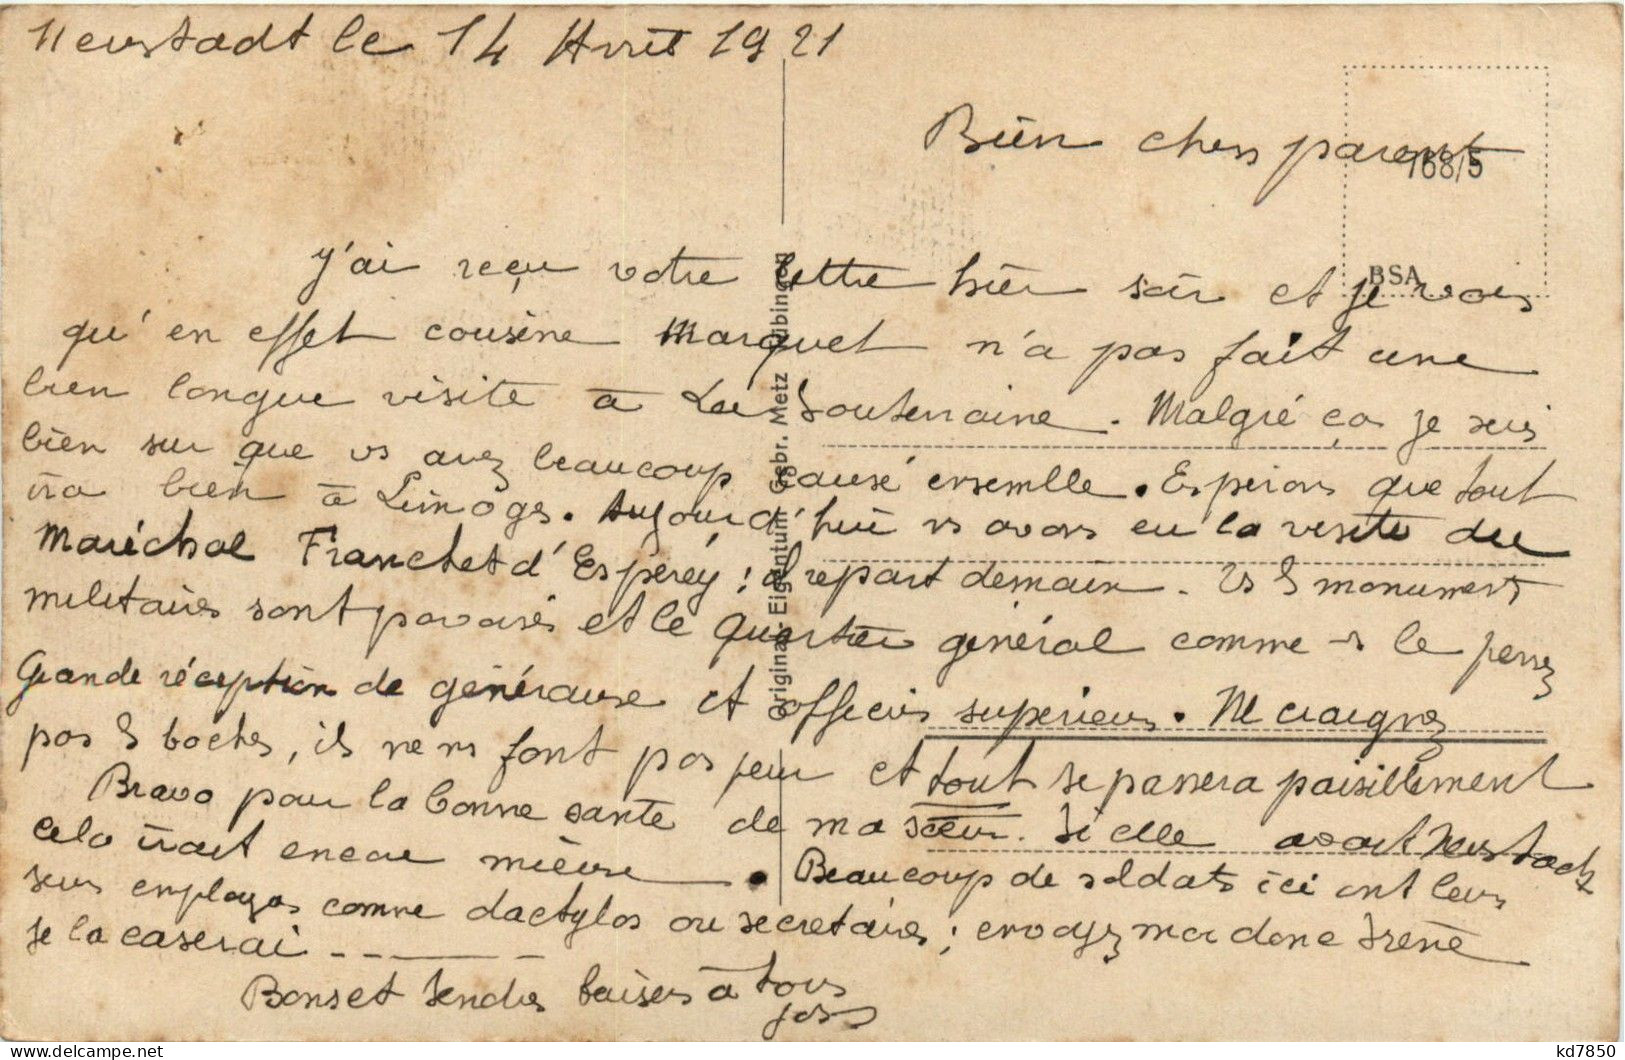 Neustadt le 14 Avril 1921
Bien chers parents
168/5
BSA
J'ai reçu votre lettre hier soir et je vois
qu'en effet cousine Marquet n'a pas fait une
bien longue visite à La Souterraine. Malgré ça je suis
bien sur que vs avez beaucoup causé ensemble. Espérons que tout
ira bien à Limoges. Aujourd'hui ns avons eu la visite du
Maréchal Franchet d'Espérey : il repart demain. Ts les monuments
militaires sont pavoisés et le Quartier général comme vs le pensez
Grande réception de généraux et officiers supérieurs. Ne craignez
pas les boches, ils ne ns font pas peur et tout se passera paisiblement
Bravo pour la bonne santé de ma sœur. Si elle avait Neustadt
cela irait encore mieux. Beaucoup de soldats ici ont leurs
sœurs employées comme dactylos ou secretaires ; envoyez moi donc Irène
Je la caserai
Bons et tendres baisers à tous
Original-Eigentum Gebr. Metz Tübingen
kd7850